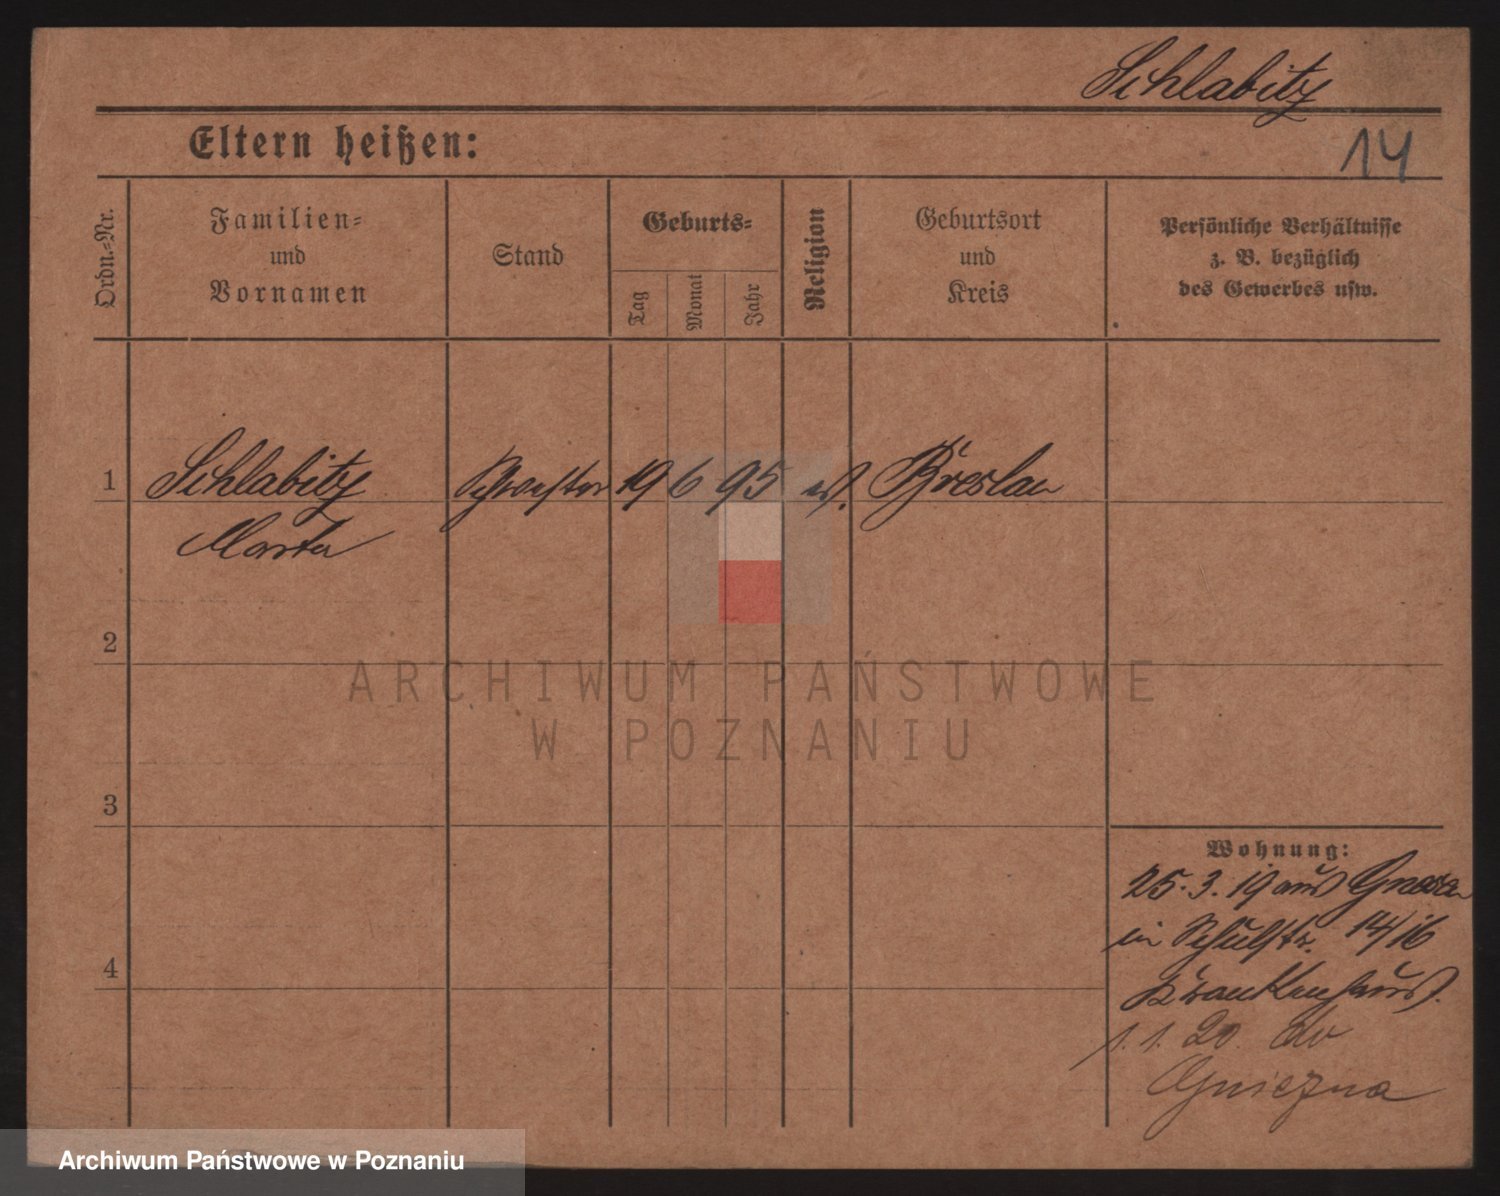 Schlabitz
14
Eltern heißen:
Ordn.-Nr.
Familien-
und
Vornamen
Stand
Geburts-
Tag
Monat
Jahr
Religion
Geburtsort
und
Kreis
Persönliche Verhältnisse
z. B. bezüglich
des Gewerbes usw.
1 Schlabitz Schwester 19 6 95 ev. Breslau
Marta
2
3
4
Wohnung:
25.3.19 aus Gnesen
in Schulstr. 14/16
Krankenhaus.
1.1.20. do
Gniezna
ARCHIWUM PAŃSTWOWE
W POZNANIU
Archiwum Państwowe w Poznaniu